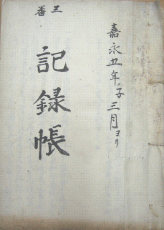 嘉永五年子三月ヨリ
三番
記録帳